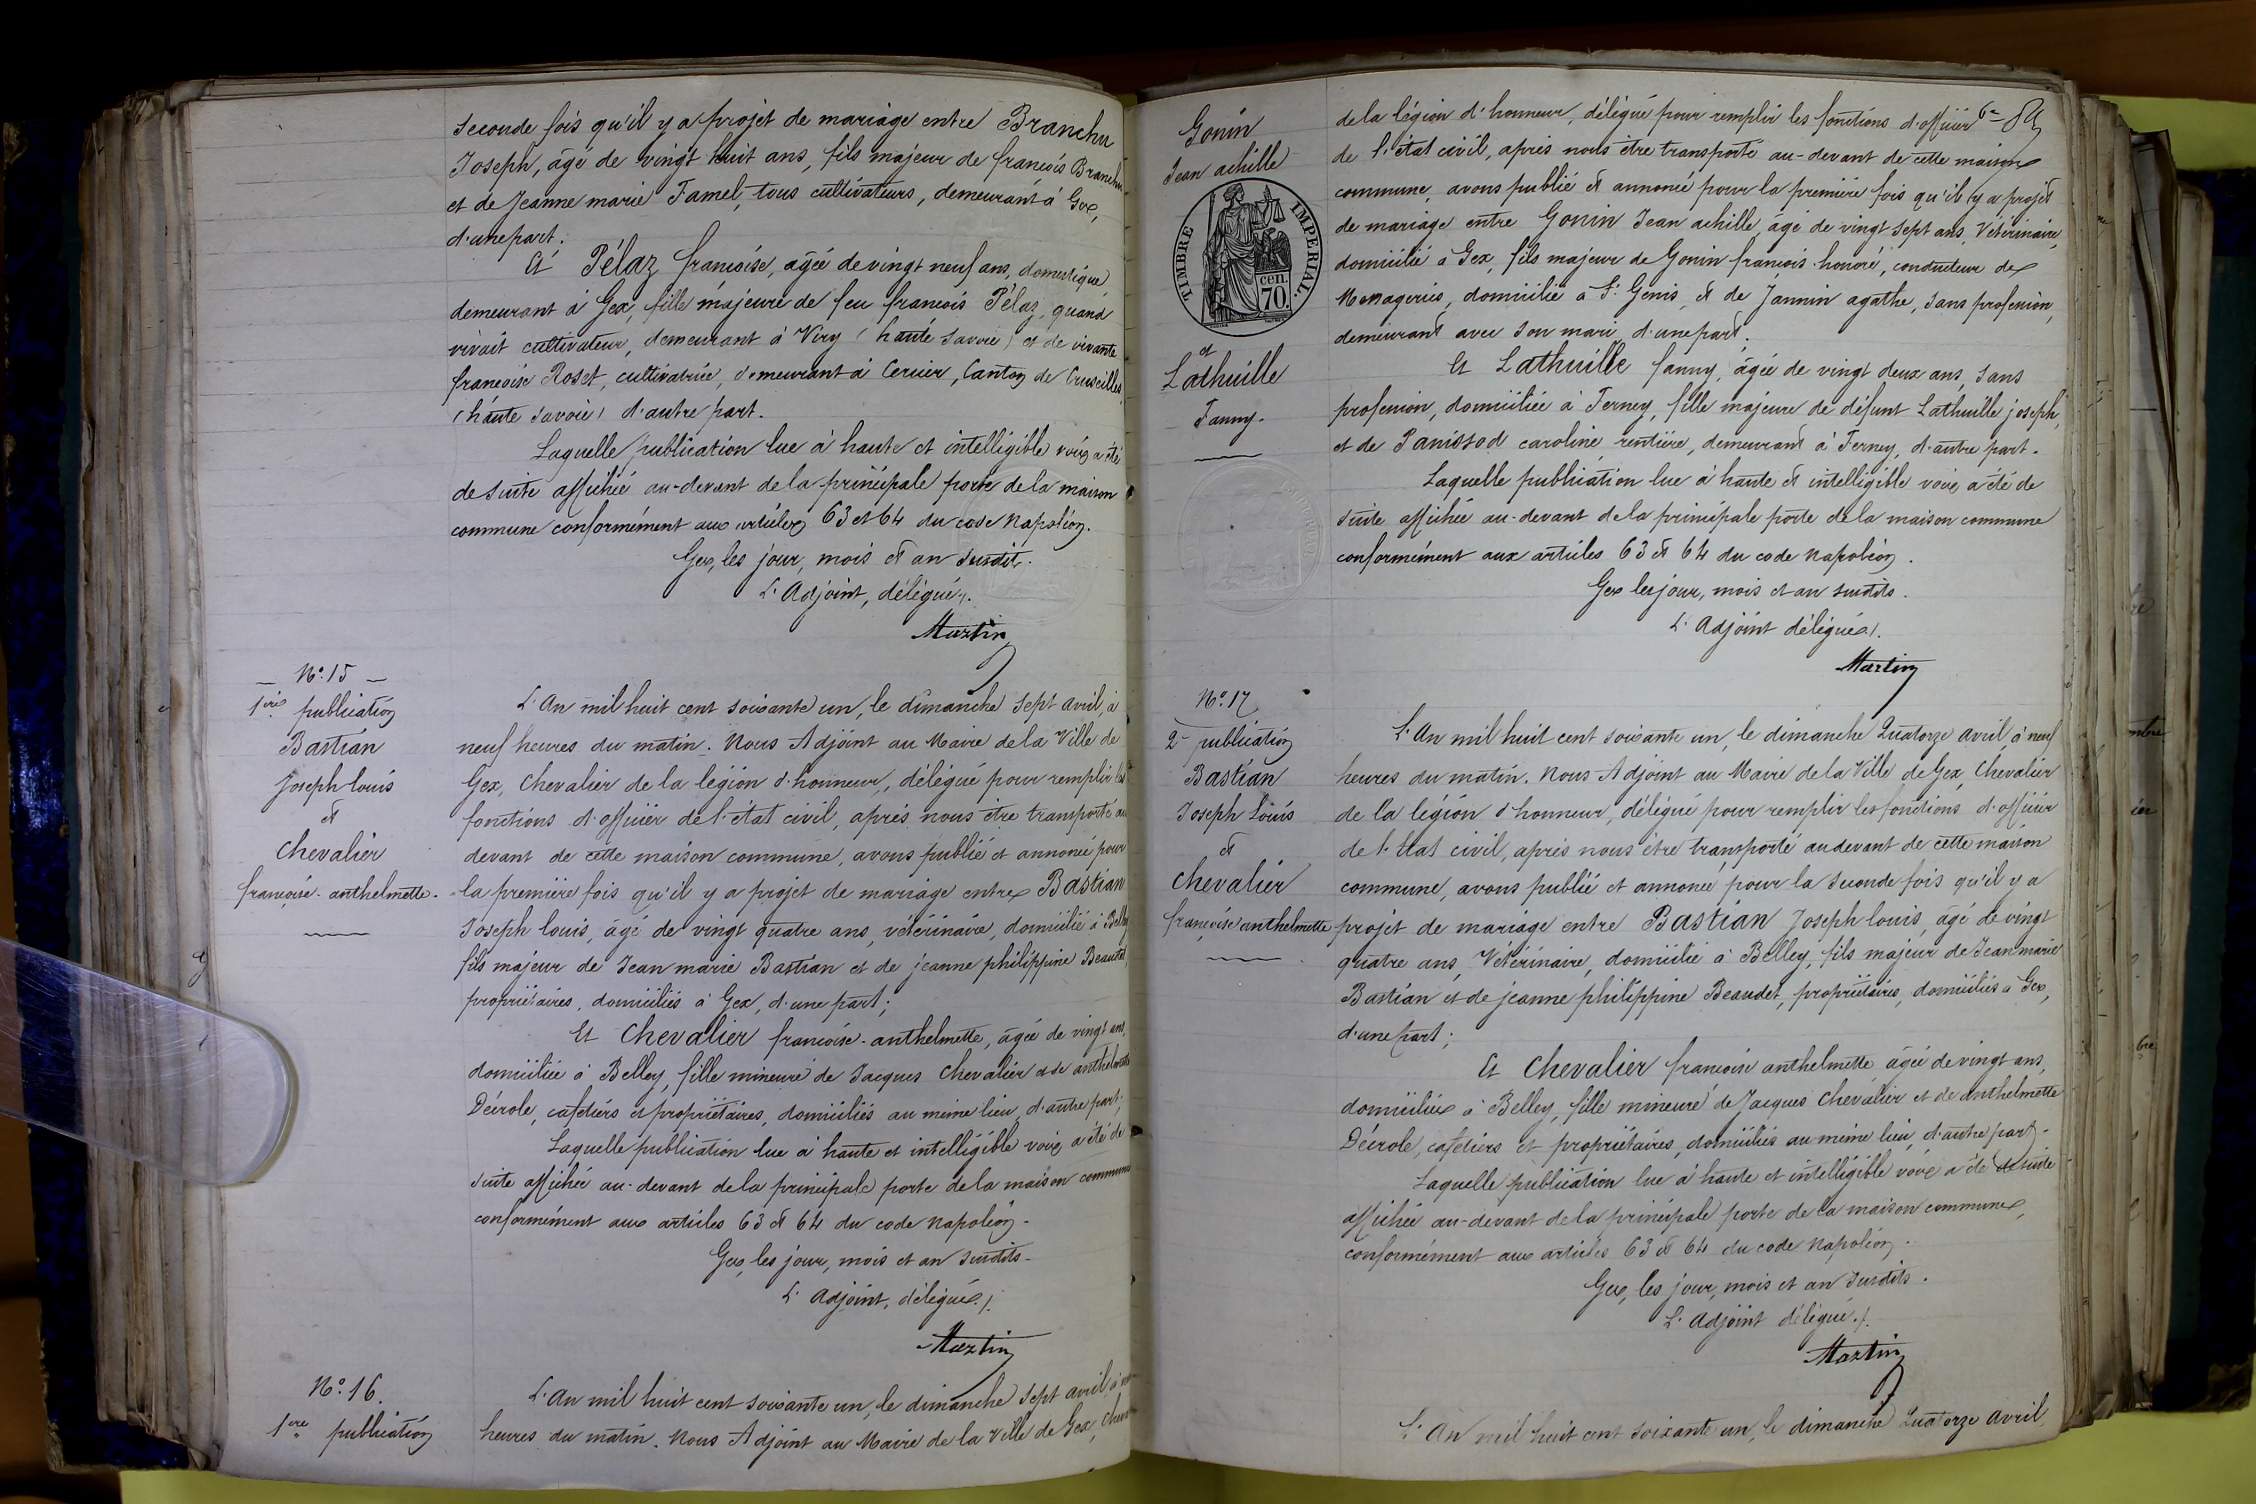 seconde fois qu'il y a projet de mariage entre Branchu
Joseph, âgé de vingt huit ans, fils majeur de françois Branchu
et de Jeanne marie Famel, tous cultivateurs, demeurant à Gex,
d'une part.
Et Pélaz francoise, agée de vingt neuf ans, domestique
demeurant à Gex, fille majeure de feu francois Pélaz, quand
vivait cultivateur, demeurant à Viry (haute savoie) et de vivante
françoise Roset, cultivatrice, demeurant à Cernier, Canton de Cruseilles
(haute savoie) d'autre part.
Laquelle publication lue à haute et intelligible voix a été
de suite affichée au-devant de la principale porte de la maison
commune conformément aux articles 63 et 64 du code Napoléon.
Gex, les jour, mois et an susdit.
L'Adjoint, délégué.
Martin
N° 15
1ère publication
Bastian
Joseph louis
et
Chevalier
françoise anthelmette.
L'An mil huit cent soixante un, le dimanche sept avril, à
neuf heures du matin. Nous Adjoint au Maire de la Ville de
Gex, Chevalier de la légion d'honneur, délégué pour remplir les
fonctions d'officier de l'état civil, après nous être transporté au
devant de cette maison commune, avons publié et annoncé pour
la première fois qu'il y a projet de mariage entre Bastian
Joseph louis, âgé de vingt quatre ans, vétérinaire, domicilié à Belley
fils majeur de Jean marie Bastian et de jeanne philippine Beaudet,
propriétaires, domiciliés à Gex, d'une part;
Et Chevalier francoise-anthelmette, âgée de vingt ans,
domiciliée à Belley, fille mineure de Jacques Chevalier et de anthelmette
Décrole, cafetiers et propriétaires, domiciliés au même lieu, d'autre part;
Laquelle publication lue à haute et intelligible voix a été de
suite affichée au-devant de la principale porte de la maison commune
conformément aux articles 63 et 64 du code Napoléon.
Gex, les jour, mois et an susdits.
L'Adjoint, délégué.
Martin
N° 16.
1ère publication
L'An mil huit cent soixante un, le dimanche sept avril à neuf
heures du matin. Nous Adjoint au Maire de la Ville de Gex, Cheva
Gonin
Jean achille
TIMBRE IMPERIAL.
cen.
70.
et
Lathuille
Fanny.
de la légion d'honneur, délégué pour remplir les fonctions d'officier
de l'état civil, après nous être transporté au-devant de cette maison
commune, avons publié et annoncé pour la première fois qu'il y a projet
de mariage entre Gonin Jean achille, âgé de vingt sept ans, Vétérinaire,
domicilié à Gex, fils majeur de Gonin francois honoré, conducteur des
Messageries, domicilié à St Genis, et de Jannin agathe, sans profession,
demeurant avec son mari, d'une part.
Et Lathuille fanny, âgée de vingt deux ans, sans
profession, domiciliée à Ferney, fille majeure de défunt Lathuille joseph,
et de Panissod caroline rentière, demeurant à Ferney, d'autre part.
Laquelle publication lue à haute et intelligible voix a été de
suite affichée au-devant de la principale porte de la maison commune
conformément aux articles 63 et 64 du code Napoléon.
Gex les jour, mois et an susdits.
L'Adjoint délégué.
Martin
N° 17
2e publication
Bastian
Joseph Louis
et
Chevalier
françoise anthelmette
L'An mil huit cent soixante un, le dimanche Quatorze avril, à neuf
heures du matin. Nous Adjoint au Maire de la Ville de Gex, Chevalier
de la légion d'honneur, délégué pour remplir les fonctions d'officier
de l'état civil, après nous être transporté au devant de cette maison
commune, avons publié et annoncé pour la seconde fois qu'il y a
projet de mariage entre Bastian Joseph louis, âgé de vingt
quatre ans, Vétérinaire, domicilié à Belley, fils majeur de Jean marie
Bastian et de jeanne philippine Beaudet, propriétaires, domiciliés à Gex,
d'une part;
Et Chevalier francoise anthelmette âgée de vingt ans,
domiciliée à Belley, fille mineure de Jacques Chevalier et de anthelmette
Décrole, cafetiers et propriétaires, domiciliés au même lieu, d'autre part.
Laquelle publication lue à haute et intelligible voix a été de suite
affichée au-devant de la principale porte de la maison commune,
conformément aux articles 63 et 64 du code Napoléon.
Gex, les jour, mois et an susdits.
L'Adjoint délégué.
Martin
L'An mil huit cent soixante un, le dimanche Quatorze avril